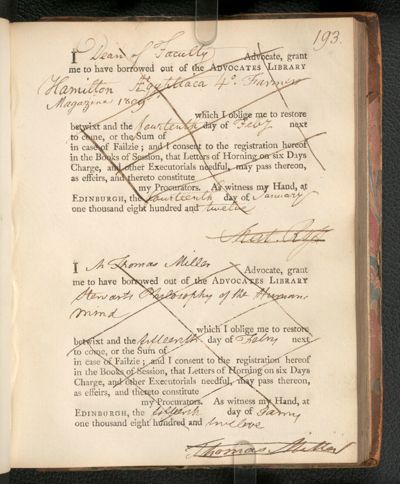 193.
I Dean of Faculty Advocate, grant
me to have borrowed out of the ADVOCATES LIBRARY
Hamilton Ægyptiaca 4º. Farmers
Magazine 1809
which I oblige me to restore
betwixt and the fourteenth day of Feby next
to come, or the Sum of
in case of Failzie; and I consent to the registration hereof
in the Books of Session, that Letters of Horning on six Days
Charge, and other Executorials needful, may pass thereon,
as effeirs, and thereto constitute
my Procurators. As witness my Hand, at
EDINBURGH, the fourteenth day of January
one thousand eight hundred and twelve
I Mr Thomas Miller Advocate, grant
me to have borrowed out of the ADVOCATES LIBRARY
Stewarts Philosophy of the Human
mind
which I oblige me to restore
betwixt and the fifteenth day of Febry next
to come, or the Sum of
in case of Failzie; and I consent to the registration hereof
in the Books of Session, that Letters of Horning on six Days
Charge, and other Executorials needful, may pass thereon,
as effeirs, and thereto constitute
my Procurators. As witness my Hand, at
EDINBURGH, the fifteenth day of Janry
one thousand eight hundred and twelve
Thomas Miller